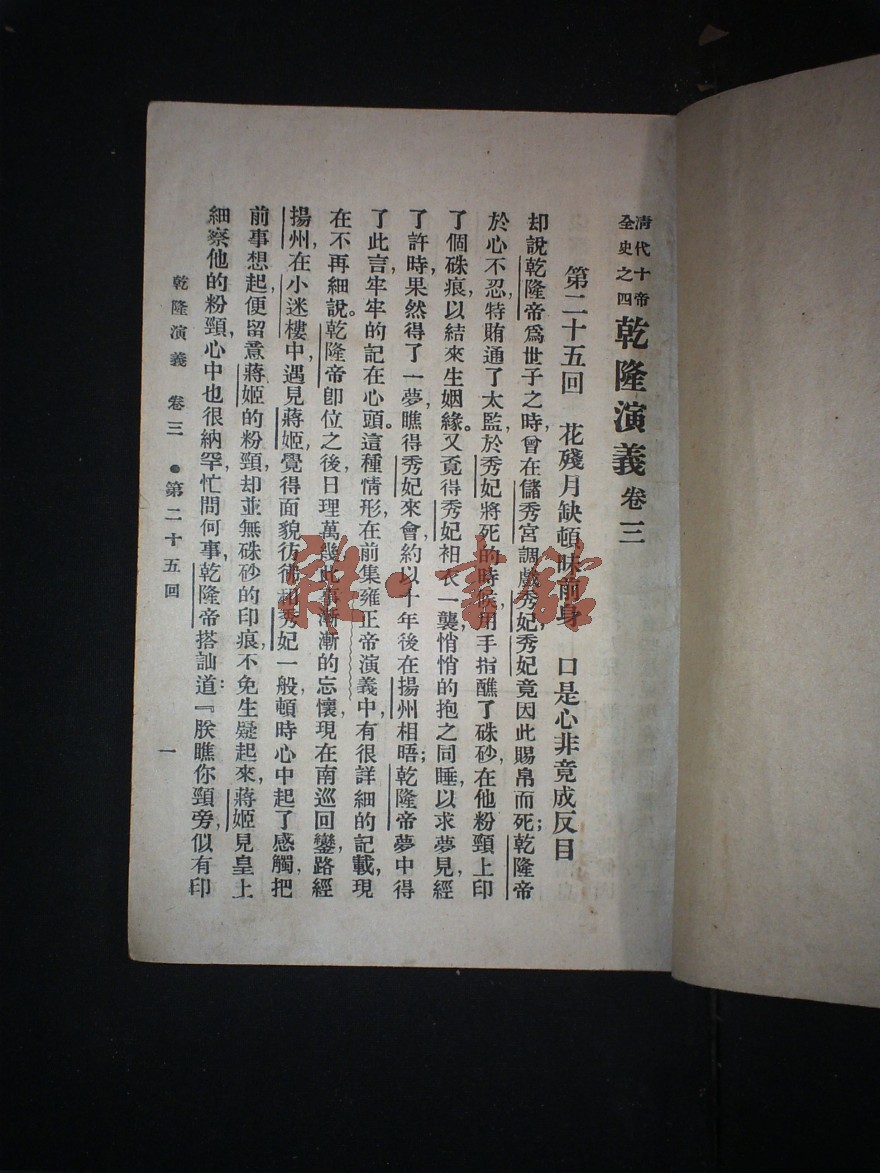 清代十帝
全史之四
乾隆演義卷三
第二十五回　花殘月缺頓昧前身　口是心非竟成反目
却說乾隆帝爲世子之時，曾在儲秀宮調戲秀妃，秀妃竟因此賜帛而死；乾隆帝
於心不忍，特賄通了太監，於秀妃將死的時候，用手指醮了硃砂，在他粉頸上印
了個硃痕，以結來生姻緣。又覓得秀妃衵衣一襲，悄悄的抱之同睡，以求夢見，經
了許時，果然得了一夢，瞧得秀妃來會，約以十年後在揚州相晤；乾隆帝夢中得
了此言，牢牢的記在心頭。這種情形，在前集雍正帝演義中，有很詳細的記載，現
在不再細說。乾隆帝卽位之後，日理萬幾，此事漸漸的忘懷，現在南巡回鑾，路經
揚州，在小迷樓中，遇見蔣姬，覺得面貌彷彿和秀妃一般，頓時心中起了感觸，把
前事想起，便留意蔣姬的粉頸，却並無硃砂的印痕，不免生疑起來，蔣姬見皇上
細察他的粉頸，心中也很納罕，忙問何事，乾隆帝搭訕道：『朕瞧你頸旁，似有印
乾隆演義　卷三　●第二十五回　一
雅·書館